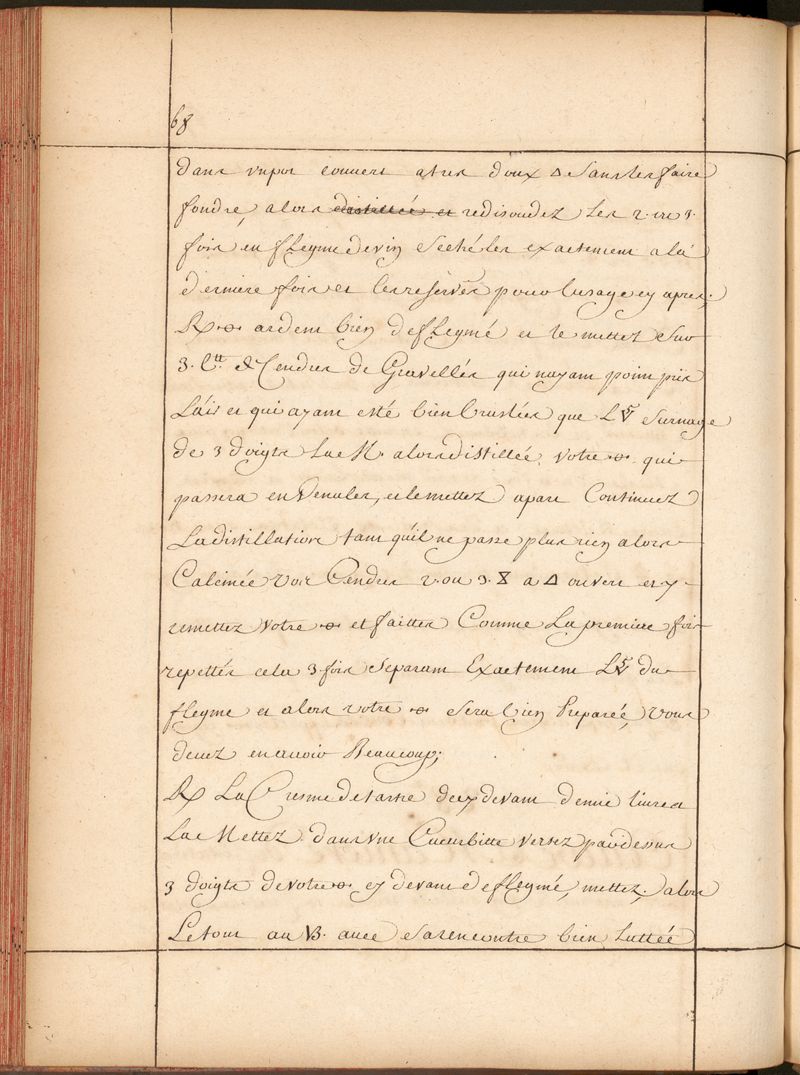 68
dans unpot couvert atres doux △ Sans les faire
fondre, alors distillée et redisoudez Les 2. ou 3.
fois en fleyme de vin Sechéles exactement a la
derniere fois et les reservés pour lusage cy apres;
℞ ardent bien defleymé et le mettez sur
3. ltt de Cendres de Gravellés qui nayant point pris
Lair et qui ayant esté bien bruslées que L🜈 surnage
de 3 doigts alors distillée votre qui
passera en Venules, et lemettez apart Continuez
La distillation tant quil ne passe plus rien alors
Calcinée vos Cendres 2. ou 3. a △ ouvert et y
remettez votre et faittes Comme La premiere fois
repettés cela 3 fois Separant Exactement L🜈 du
fleyme et alors votre sera bien Preparéé, Vous
devez en avoir Beaucoup;
℞ La Cresme de tartre decy devant demie livre
La Mettez dans vne Cucurbitte versez par dessus
3 doigts de votre cy devant defleymé, mettez, alors
Letout au B. avec sa rencontre bien Luttéé